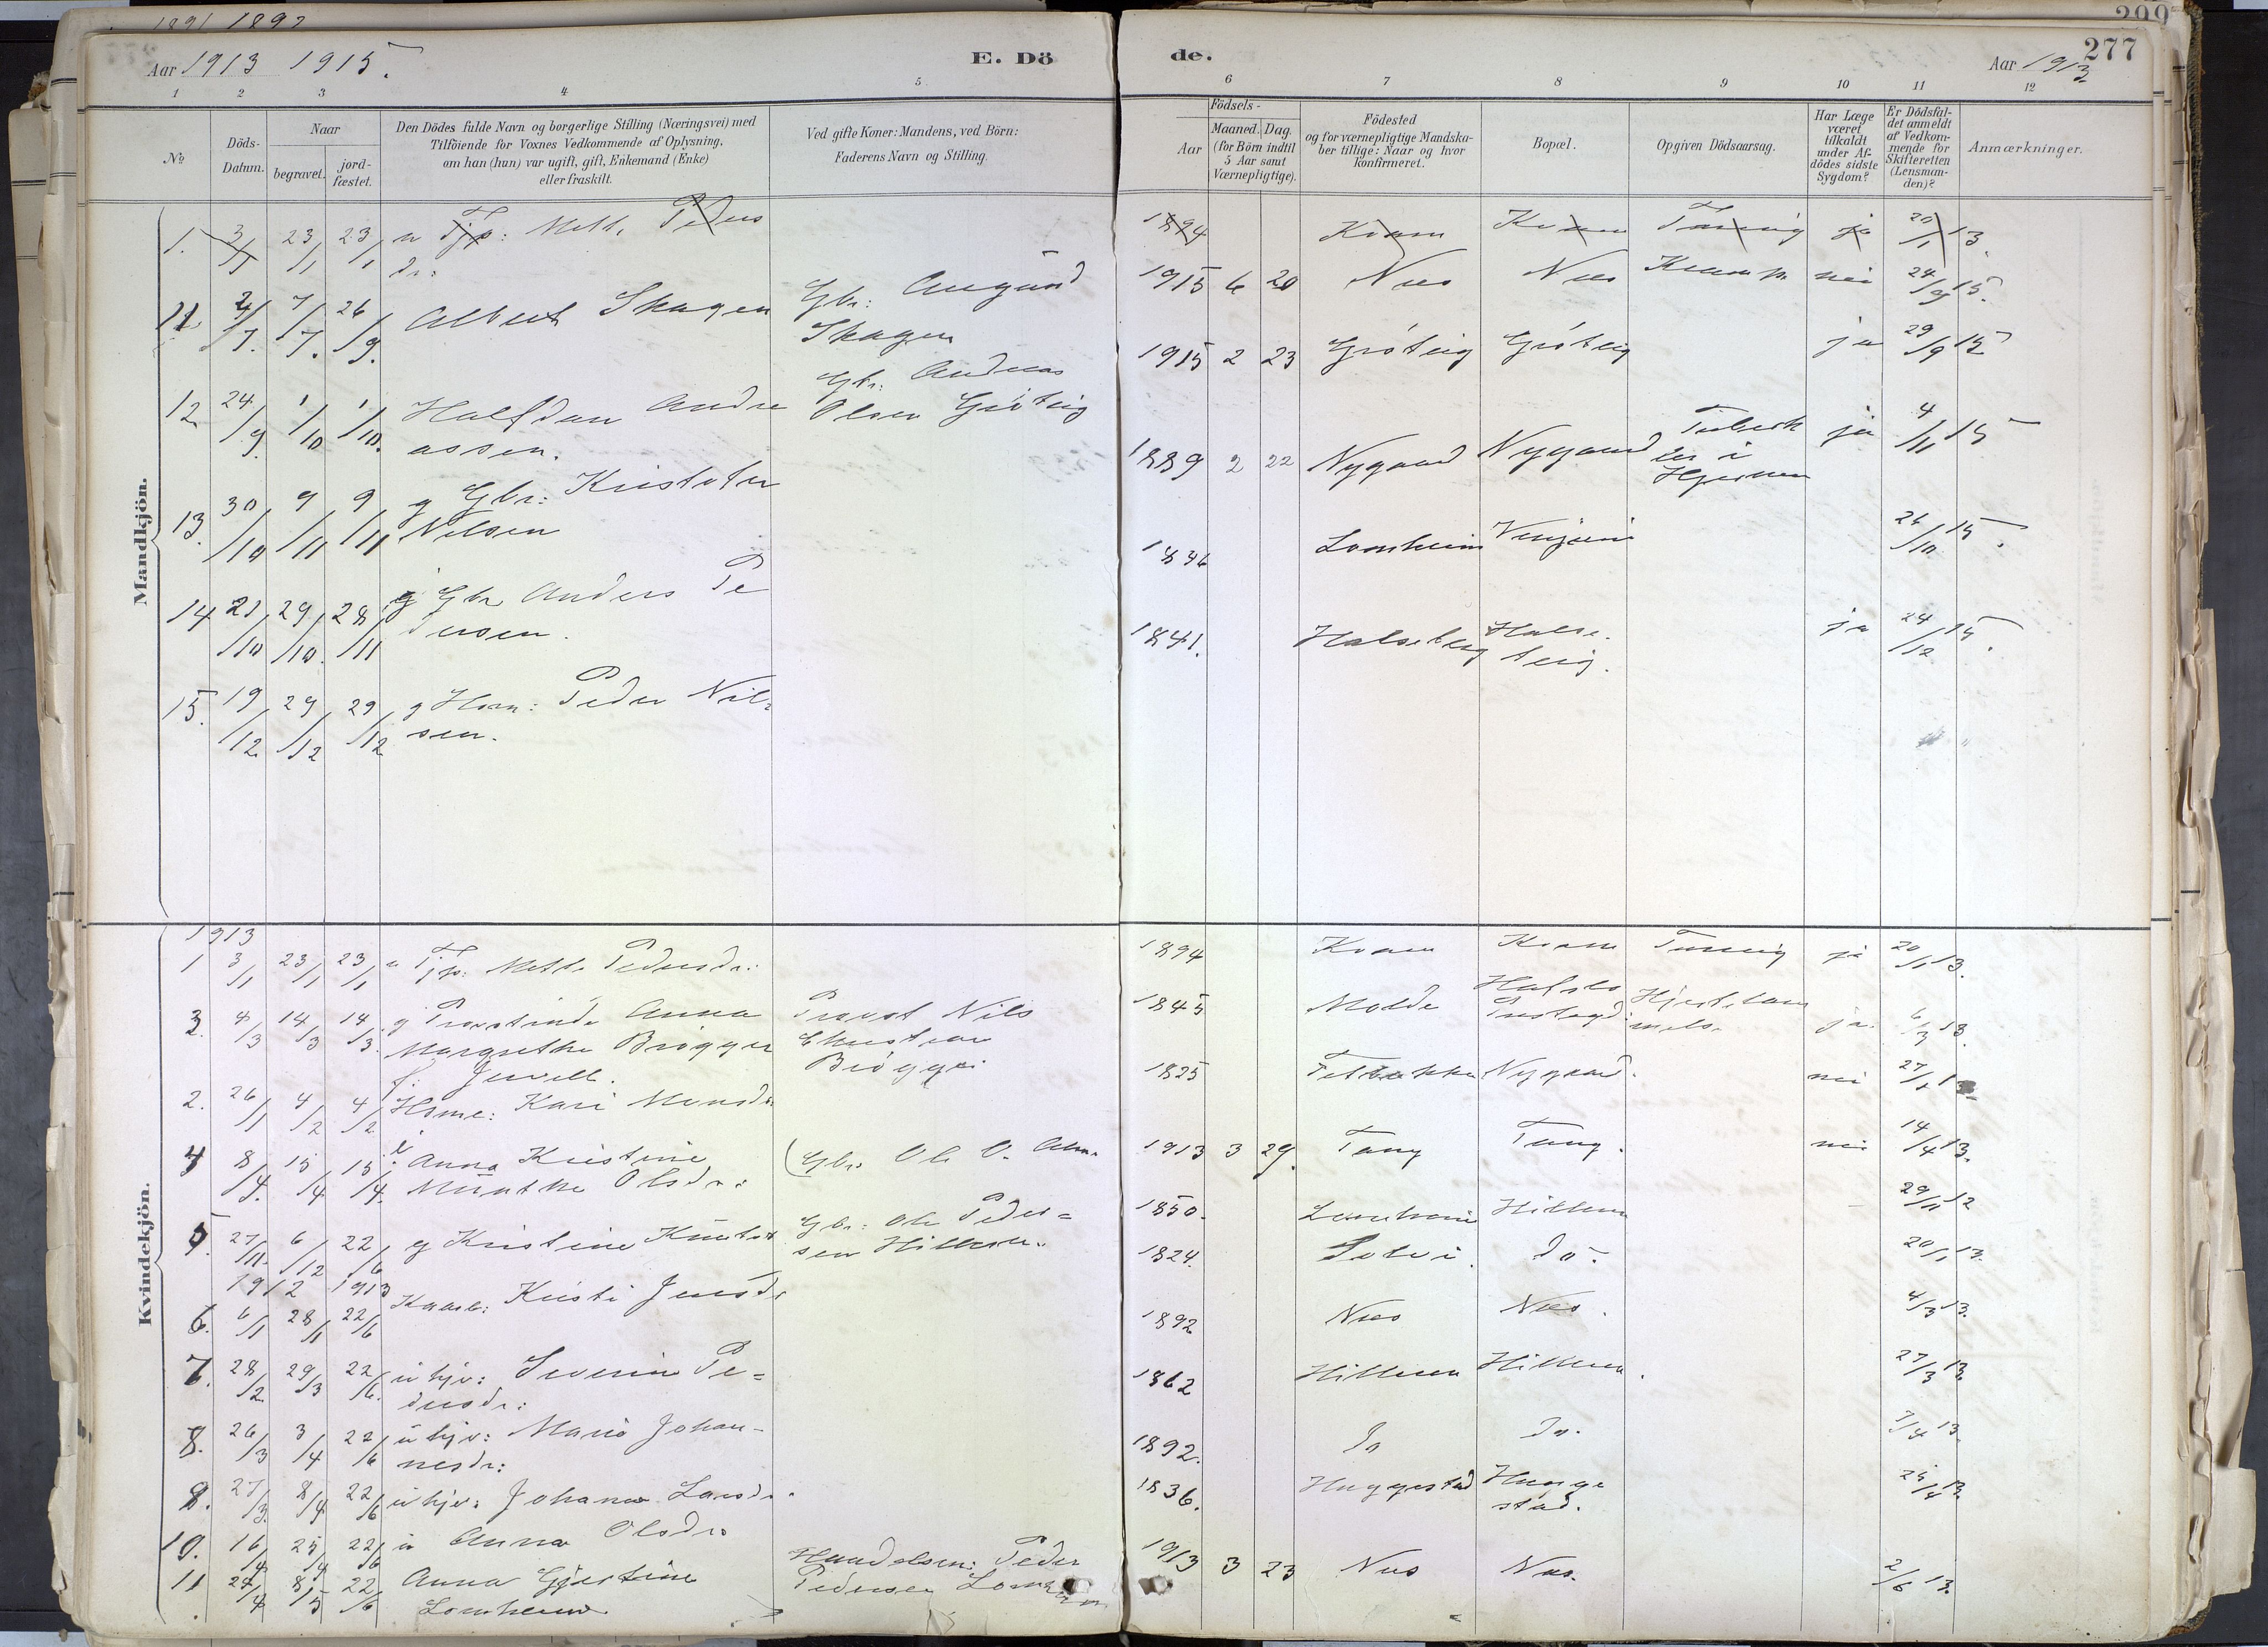 1891 1892
299
277
Aar 1913 1915.
E. Dö
de.
Aar 1913
1 2 3 4 5
6 7 8 9 10 11 12
No
Döds-Datum.
Naar
begravet.
jord-fæstet.
Den Dödes fulde Navn og borgerlige Stilling (Næringsvei) med
Tilföiende for Voxnes Vedkommende af Oplysning,
om han (hun) var ugift, gift, Enkemand (Enke)
eller fraskilt.
Ved gifte Koner: Mandens, ved Börn:
Faderens Navn og Stilling.
Aar
Födsels-
Maaned. Dag.
(for Börn indtil
5 Aar samt
Værnepligtige).
Födested
og for værnepligtige Mandska-
ber tillige: Naar og hvor
Konfirmeret.
Bopæl.
Opgiven Dödsaarsag.
Har Læge
været
tilkaldt
under Af-
dödes sidste
Sygdom?
Er Dödsfal-
det anmeldt
af Vedkom-
mende for
Skifteretten
(Lensman-
den)?
Anmærkninger.
Mandkjön.
1. 3/1 23/1 23/1 u Tjp: Mette Peders
dr: 1894 Kvam Kvam Tæring ja 20/1 13.
11 2/7. 7/7. 26/9. Albert Skagen Gbr: Augund
Skagen 1915 6 20 Nes Nes Kramp. nei 24/9 15.
12 24/9. 1/10 1/10. Halfdan Andre
assen. Gbr: Andreas
Olsen Gröteig 1915 2 23 Gröteig Gröteig ja 29/9 15
13. 30/10 9/11 9/11 g Gbr: Kristofer
Nilsen 1889 2 22 Nygaard Nygaard Tuberk
ler i
Hjernen ja 4/11 15
14 21/10 29/10. 28/11 g Gbr Anders Pe
dersen. 1836 Lomheim 26/10 15.
15. 19/12 29/12 29/12 g Hsm: Peder Nil-
sen. 1841. Halseteig Halse-
teig. ja 24/12 15.
Kvindekjön.
1913
1 3/1 23/1 23/1 u Tjp: Mette Pedersdr: 1894 Kvam Kvam Tæring ja 20/1 13.
3. 4/3 14/3 14/3. g Provstinde Anna
Margrethe Brögger
f. Juell. Provst Nils
Christian
Brögger 1845 Molde Hafslo
Prestegd. Hjertelam
melse ja. 6/3 13.
2. 26/1 4/2 4/2 Hsme: Kari Monsdr 1825 Nygaard. nei 27/1 13
4 8/4. 15/4 15/4. Anna Kristine
Munthe Olsdr: (Gbr: Ole O. 1913 3 29. Tang Tang. nei 14/4 13.
5. 27/11. 6/12 22/6 g Kristine Knutsd Gbr: Ole Peder-
sen Hillern. 1850. Lomheim Hillern 29/11 12
1912 1913
6. 6/1 28/1 22/6 Kaarb: Kristi Jensdr 1824. do. 20/1 13.
7. 28/2 29/3 22/6. u hjv: Severine Pe-
dersdr: 1892 Nes Nes. 4/3 13.
8. 26/3 3/4 22/6 u hjv: Marie Johan-
nesdr: 1862 Hilleren Hilleren. 27/3 13
9. 27/3. 8/4 22/6 u hjv: Johanne Larsdr. 1892. Do Do. 7/4 13.
10. 16/4 25/4 22/6 u Anna Olsdr 1836. Huggestad Hunge
stad. 25/4 13.
11. 24/4 8/5 22/6 Anna Gjertine
Lomheim Handelsm: Peder
Pedersen Lomheim 1913 3 23 Nes Nes. 2/6 13.